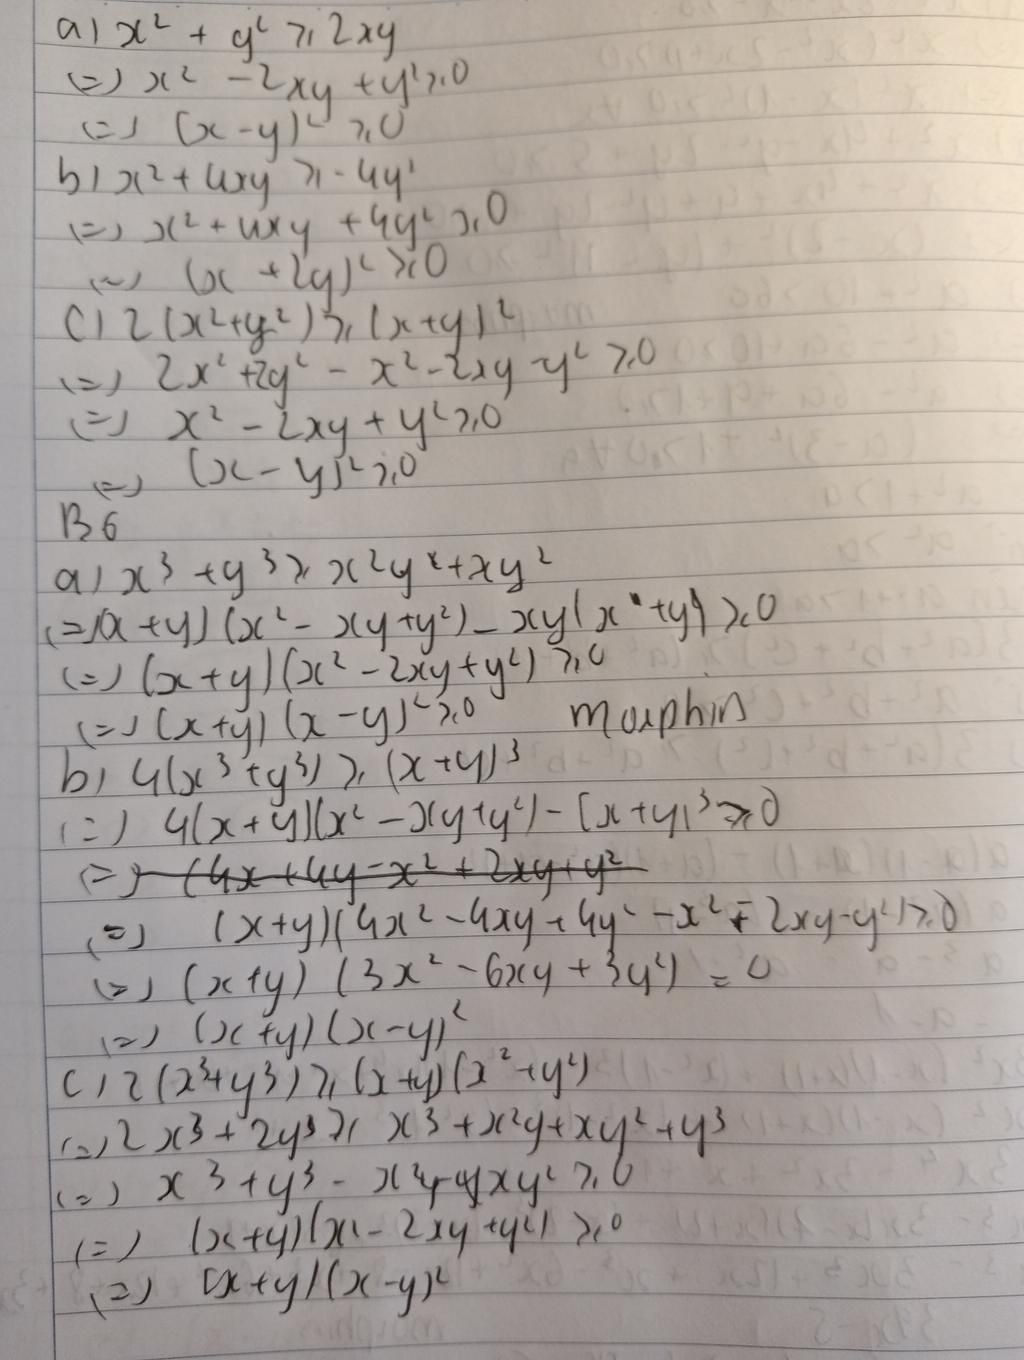 a) x² + y² ≥ 2xy
(=) x² - 2xy + y² ≥ 0
(=) (x - y)² ≥ 0
b) x² + 4xy ≥ -4y²
(=) x² + 4xy + 4y² ≥ 0
(=) (x + 2y)² ≥ 0
c) 2(x² + y²) ≥ (x + y)²
(=) 2x² + 2y² - x² - 2xy - y² ≥ 0
(=) x² - 2xy + y² ≥ 0
(=) (x - y)² ≥ 0
B6
a) x³ + y³ ≥ x²y + xy²
(=) (x + y)(x² - xy + y²) - xy(x + y) ≥ 0
(=) (x + y)(x² - 2xy + y²) ≥ 0
(=) (x + y)(x - y)² ≥ 0 morphin
b) 4(x³ + y³) ≥ (x + y)³
(=) 4(x + y)(x² - xy + y²) - (x + y)³ ≥ 0
(=) (4x + 4y - x² + 2xy + y²
(=) (x + y)(4x² - 4xy + 4y² - x² - 2xy - y²) ≥ 0
(=) (x + y)(3x² - 6xy + 3y²) = 0
(=) (x + y)(x - y)²
c) 2(x³ + y³) ≥ (x + y)(x² + y²)
(=) 2x³ + 2y³ ≥ x³ + x²y + xy² + y³
(=) x³ + y³ - x²y - xy² ≥ 0
(=) (x + y)(x² - 2xy + y²) ≥ 0
(=) (x + y)(x - y)²